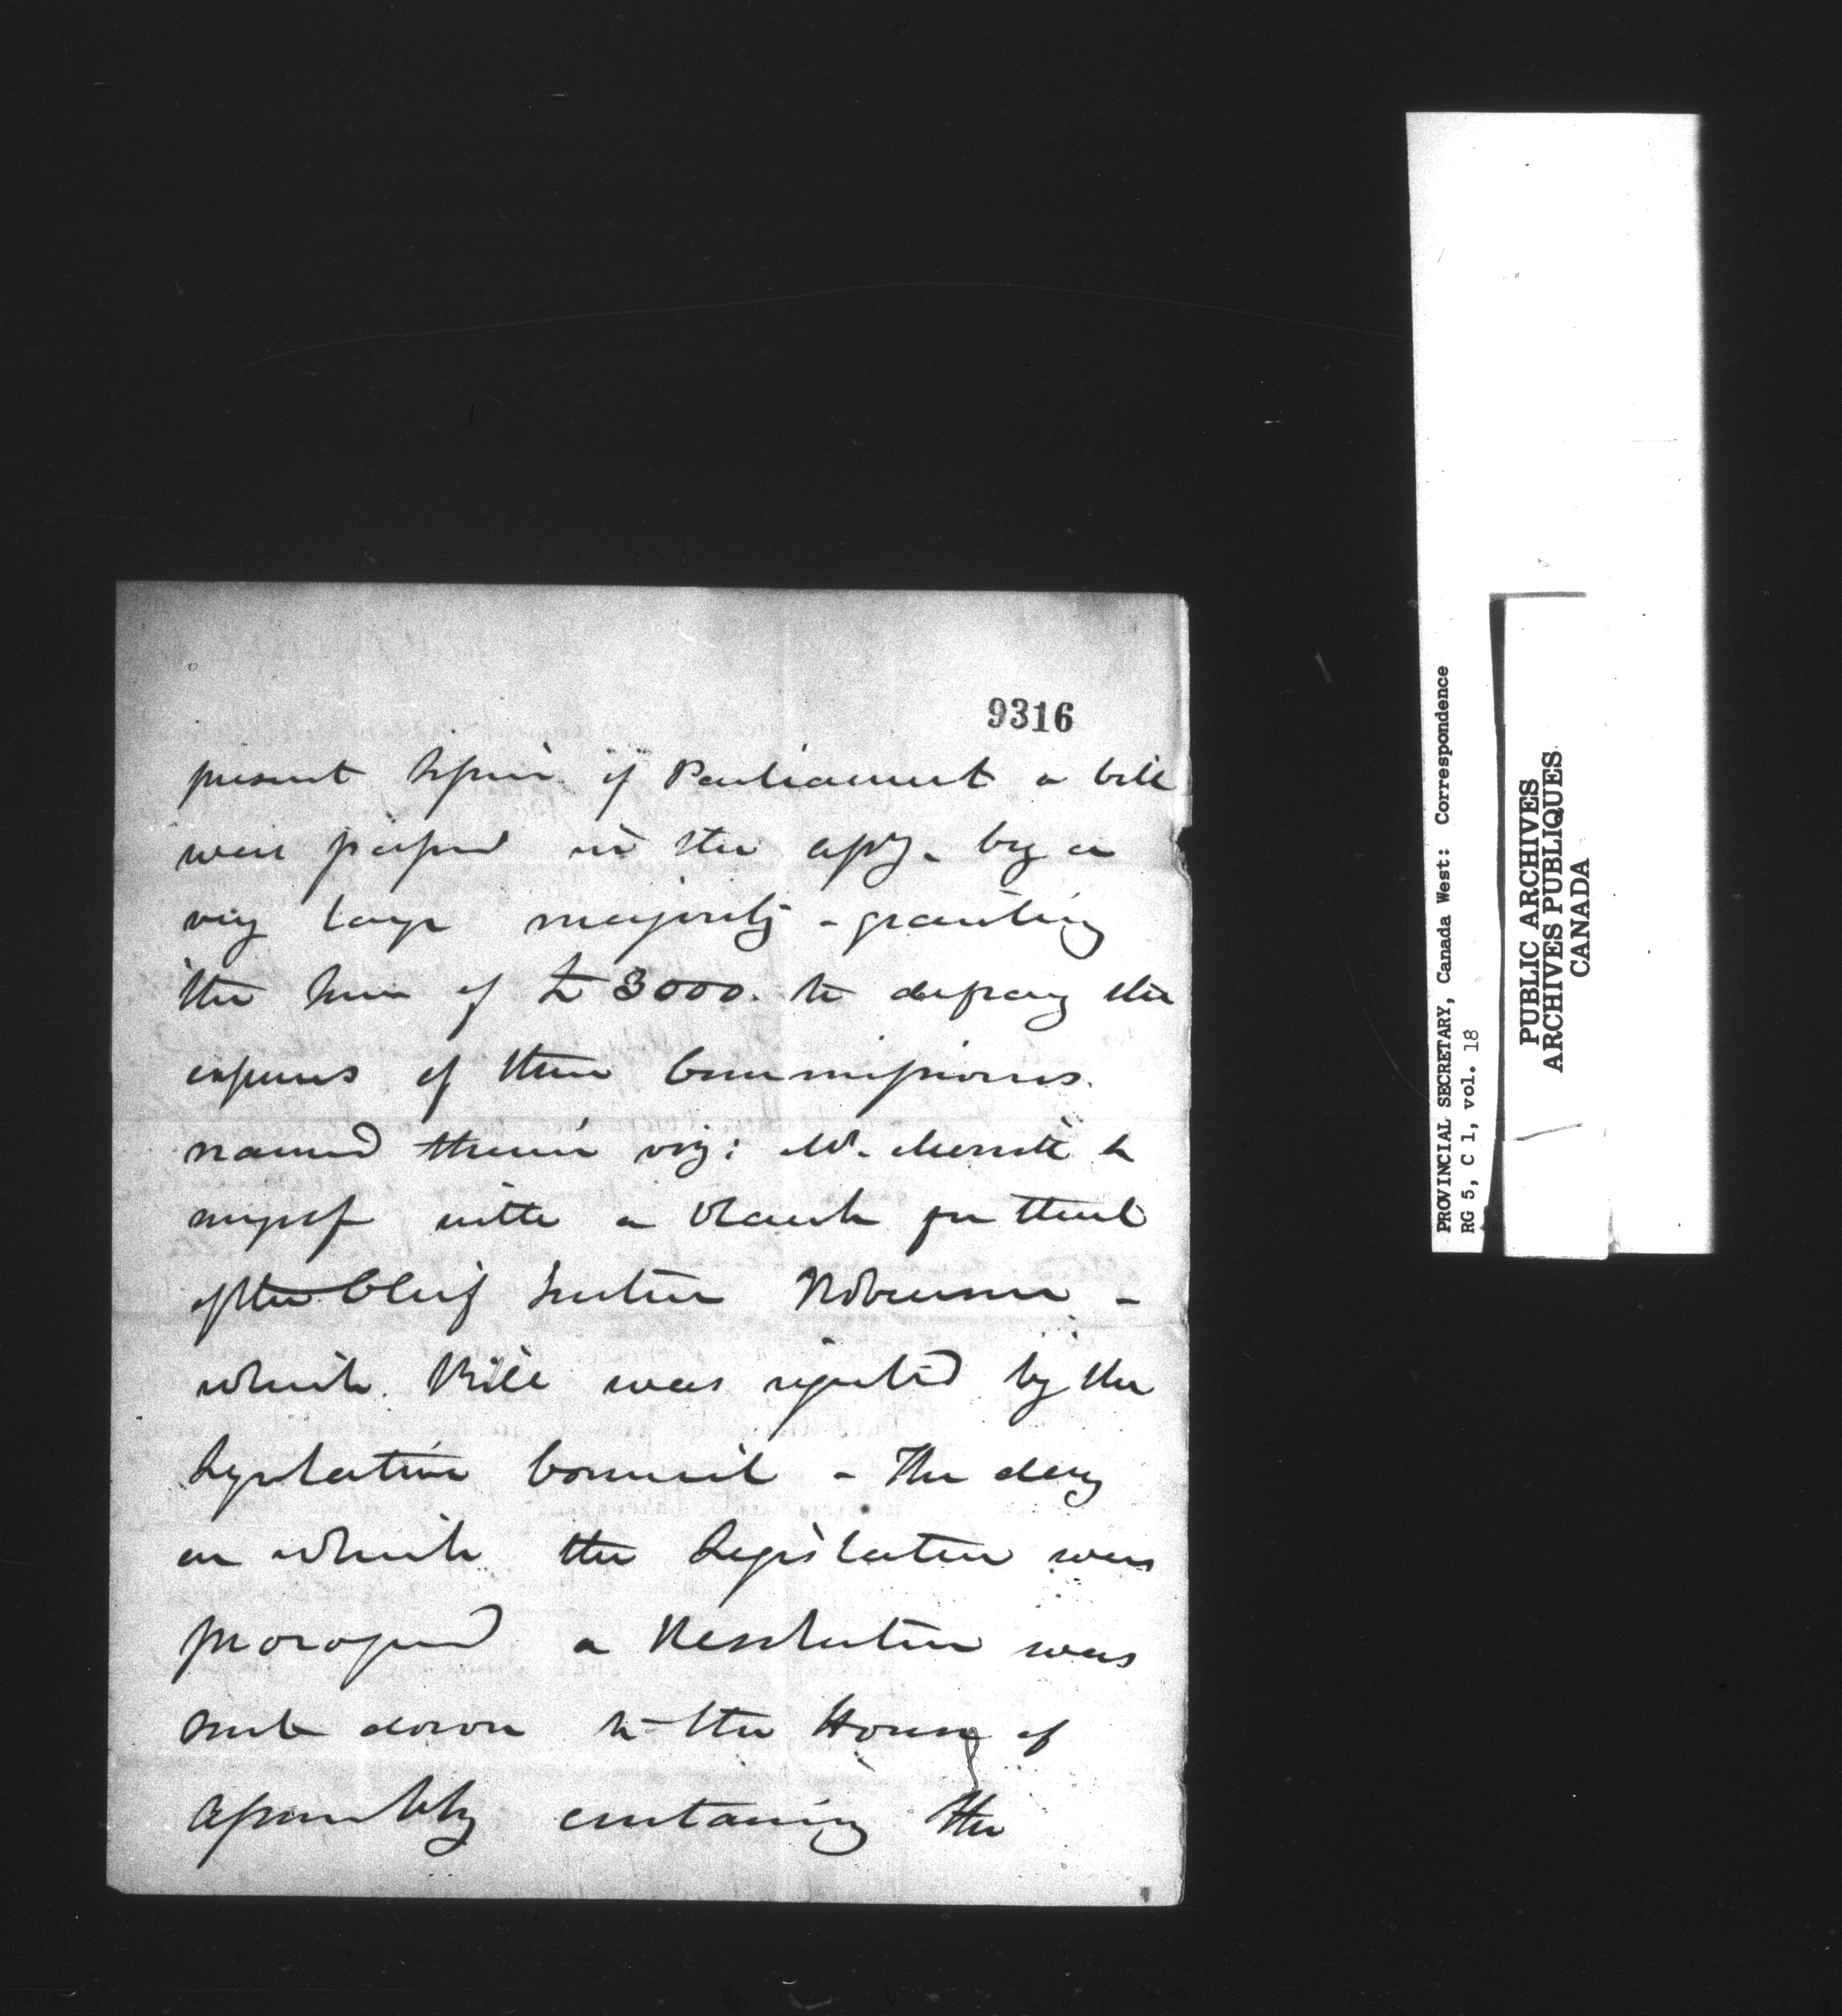 9316
present Session of Parliament a bill
was passed in the assy. by a
very large majority - granting
the sum of £3000. to defray the
expenses of three Commissioners.
named therein viz: Mr. Merritt &
myself with a blank for that
of the Chief Justice Robinson -
which Bill was rejected by the
Legislative Council - The day
on which the Legislature was
prorogued a Resolution was
sent down to the House of
Assembly containing the
PROVINCIAL SECRETARY, Canada West: Correspondence
RG 5, C 1, vol. 18
PUBLIC ARCHIVES
ARCHIVES PUBLIQUES
CANADA